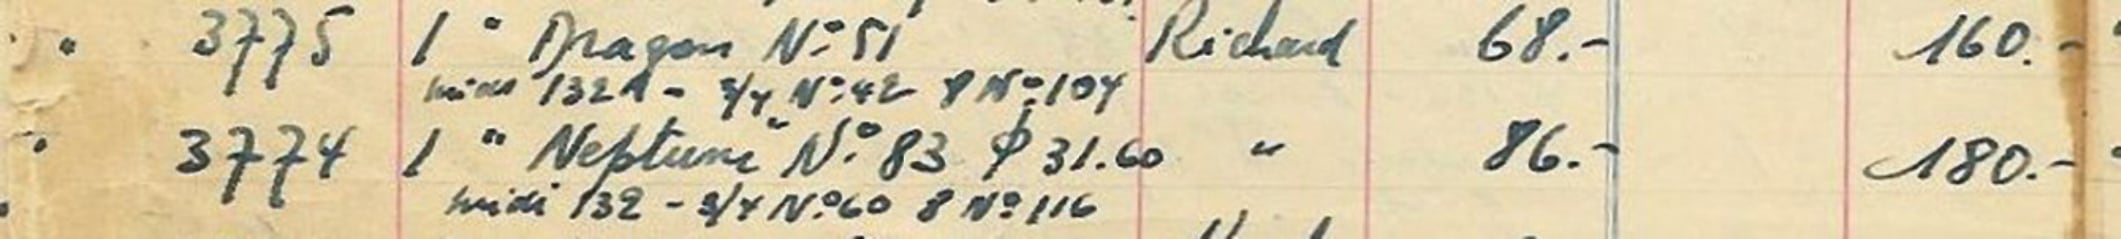 3775 1 " Dragon N° 51 Richard 68.- 160.-
midi 132 - 3/4 N° 42 8 N° 104
3774 1 " Neptune" N° 83 φ 31.60 " 86.- 180.-
midi 132 - 3/4 N° 60 8 N° 116